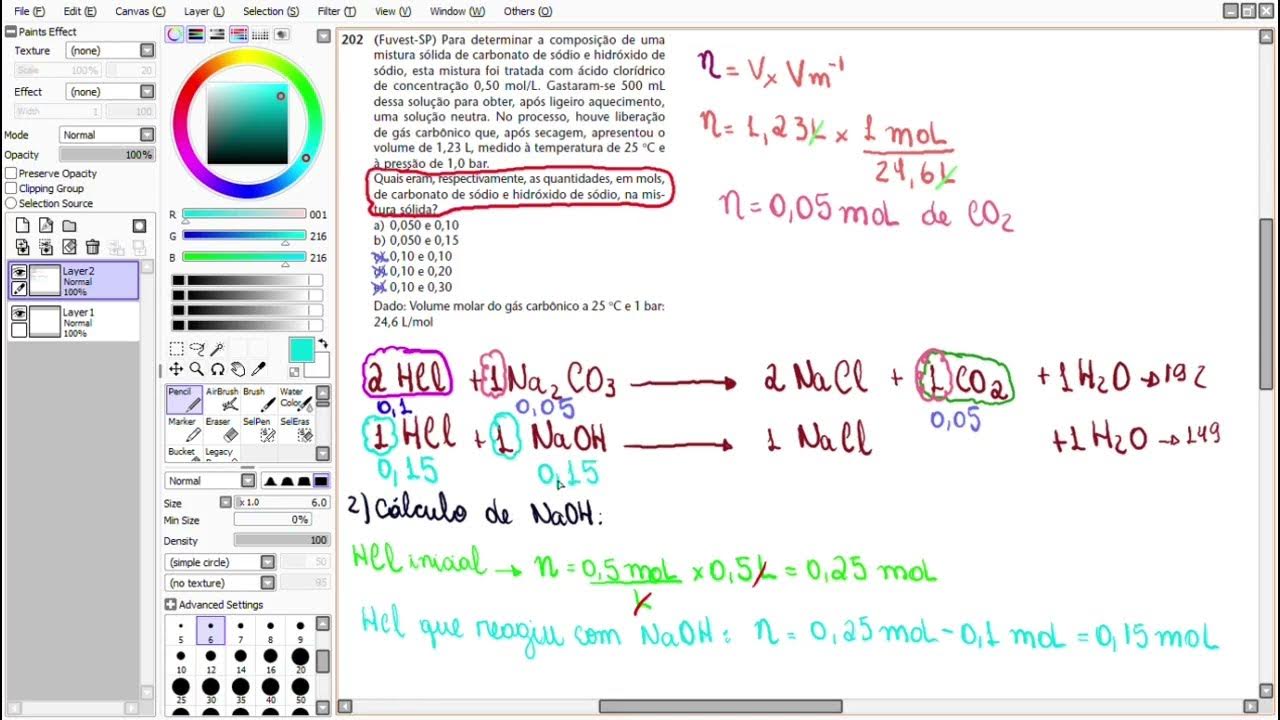 File (F) Edit (E) Canvas (C) Layer (L) Selection (S) Filter (T) View (V) Window (W) Others (O)
Paints Effect
Texture (none)
Scale 100% 20
Effect (none)
Width 1 100
Mode Normal
Opacity 100%
Preserve Opacity
Clipping Group
Selection Source
Layer2
Normal
100%
Layer1
Normal
100%
R 001
G 216
B 216
Pencil AirBrush Brush Water Color
Marker Eraser SelPen SelEras
Bucket Legacy
Normal
Size x 1.0 6.0
Min Size 0%
Density 100
(simple circle) 50
(no texture) 95
Advanced Settings
5 6 7 8 9
10 12 14 16 20
25 30 35 40 50
202 (Fuvest-SP) Para determinar a composição de uma
mistura sólida de carbonato de sódio e hidróxido de
sódio, esta mistura foi tratada com ácido clorídrico
de concentração 0,50 mol/L. Gastaram-se 500 mL
dessa solução para obter, após ligeiro aquecimento,
uma solução neutra. No processo, houve liberação
de gás carbônico que, após secagem, apresentou o
volume de 1,23 L, medido à temperatura de 25 °C e
à pressão de 1,0 bar.
Quais eram, respectivamente, as quantidades, em mols,
de carbonato de sódio e hidróxido de sódio, na mis-
tura sólida?
a) 0,050 e 0,10
b) 0,050 e 0,15
c) 0,10 e 0,10
d) 0,10 e 0,20
e) 0,10 e 0,30
Dado: Volume molar do gás carbônico a 25 °C e 1 bar:
24,6 L/mol
n = V x Vm⁻¹
n = 1,23L x 1 mol
24,6L
n = 0,05 mol de CO₂
2 HCl + 1 Na₂CO₃ → 2 NaCl + 1 CO₂ + 1 H₂O → 192
0,1 0,05 0,05
1 HCl + 1 NaOH → 1 NaCl + 1 H₂O → 149
0,15 0,15
2) Cálculo de NaOH:
HCl inicial → n = 0,5 mol x 0,5L = 0,25 mol
L
HCl que reagiu com NaOH: n = 0,25 mol - 0,1 mol = 0,15 mol